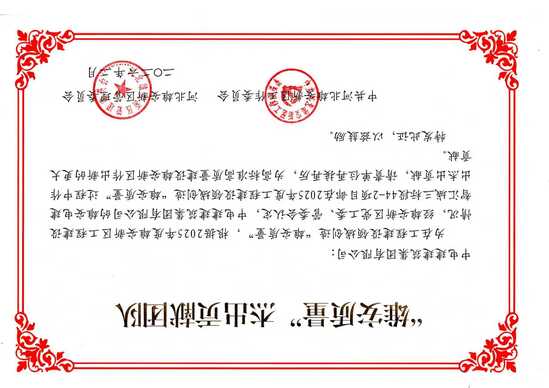 “雄安质量”杰出贡献团队
中电建建筑集团有限公司：
为在工程建设领域创造“雄安质量”，根据2025年度雄安新区工程建设
情况，经雄安新区党工委、管委会认定，中电建建筑集团有限公司的雄安电建
智汇城三标段44-2项目部在2025年度工程建设领域创造“雄安质量”过程中作
出杰出贡献，请贵单位再接再厉，为高标准高质量建设雄安新区作出新的更大
贡献。
特发此证，以兹鼓励。
中共河北雄安新区工作委员会　河北雄安新区管理委员会
二〇二六年二月